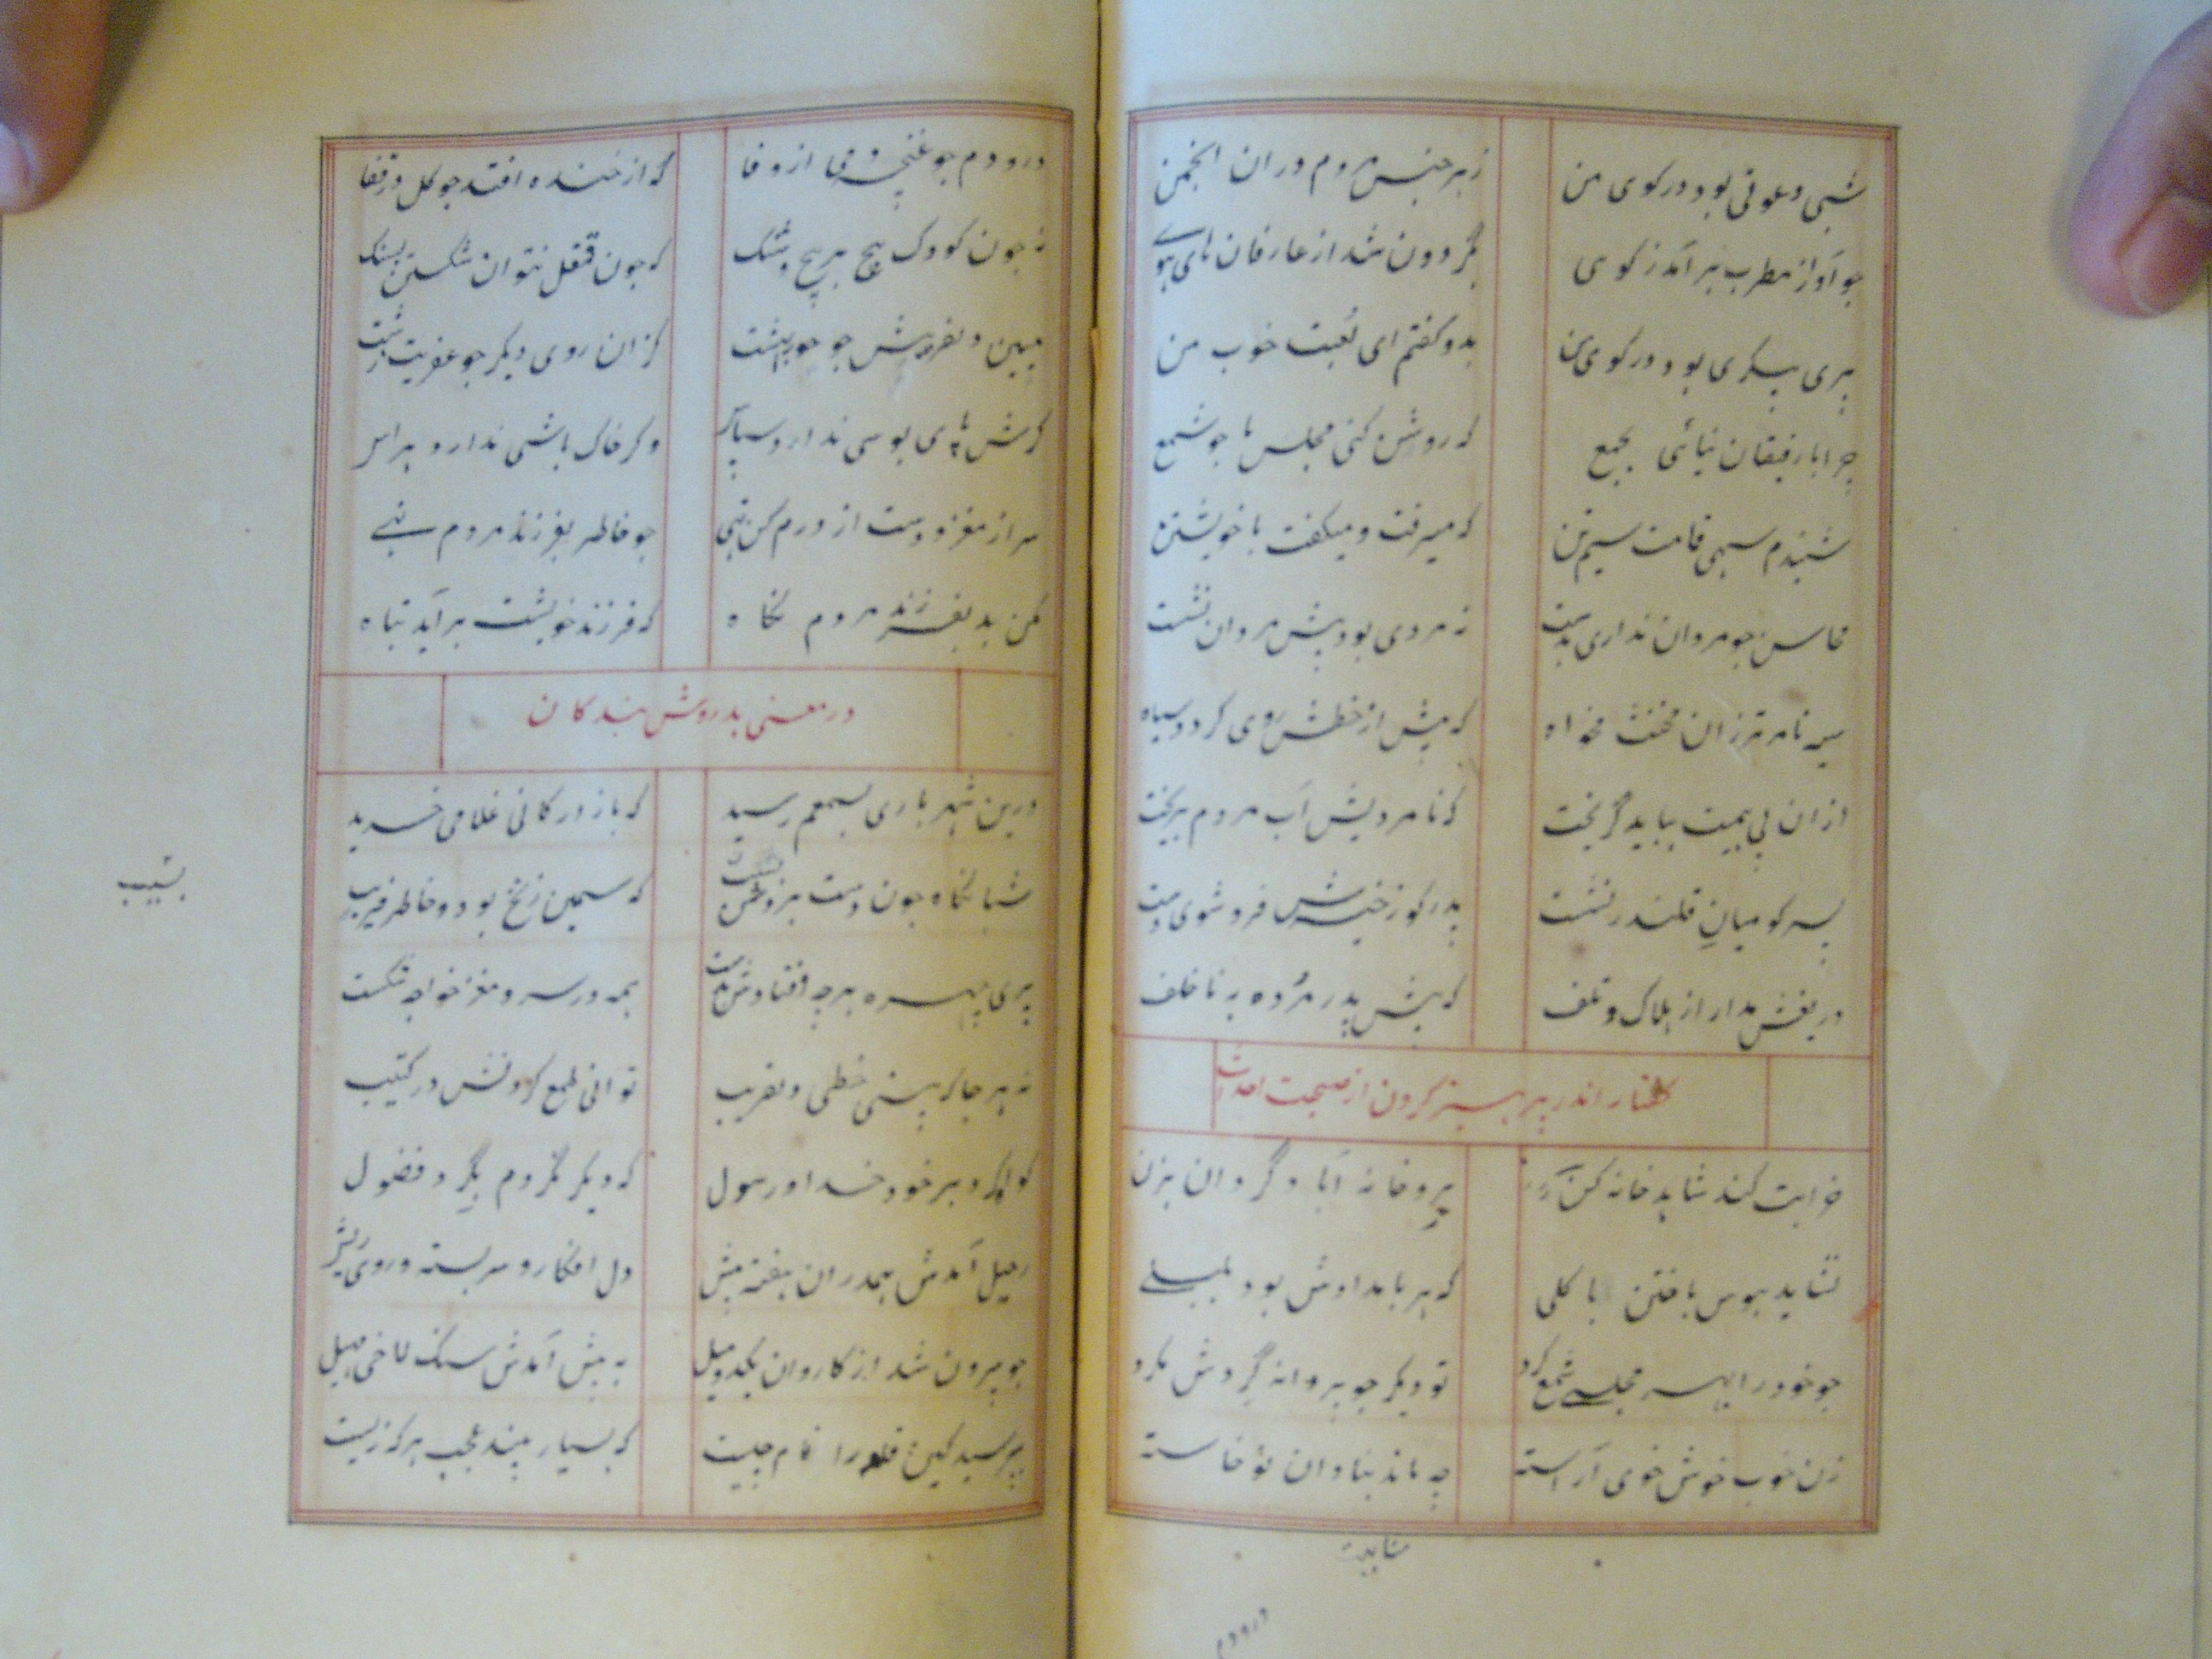 شبی دعوتی بود در کوی من زهر جنس مردم دران انجمن
جو آواز مطرب برآمد ز کوی بگردون شد از عارفان های هوی
پری پیکری بود در کوی من بدو کفتم ای لعبت خوب من
چرا با رفیقان نیائی بجمع که روشن کنی مجلس ما جو شمع
شنیدم سهی قامت سیم تن که میرفت و میکفت با خویشتن
محاسن جو مردان نداری بدست نه مردی بود پیش مردان نشست
سیه نامه تر زان مخنث مخواه که پیش از خطش روی کردد سیاه
ازان بی حمیت بباید گریخت که نامردیش آب مردم بریخت
پسر کو میان قلندر نشست پدر کو ز خیرش فروشوی دست
دریغش مدار از هلاک و تلف که پیش پدر مرده به ناخلف
گفتار اندر پرهیز کردن از صحبت احداث
خرابت کند شاید خانه کن برو خانه آباد گردان بزن
نشاید هوس باختن با کلی که هر بامدادش بود بلبلی
جو خود را بهر مجلسی شمع کرد تو دیکر جو پروانه گردش مکرد
زن خوب خوش خوی آراسته چه ماند بنادان نوخاسته
درو دم جو غنچه دمی از وفا که از خنده افتد جو کل در قفا
نه جون کودک پیچ بر پیچ شنک که جون مقل نتوان شکستن بسنک
مبین دلفریبش جو حور بهشت کزان روی دیکر جو عفریت زشت
کرش پای بوسی ندارد سپاس وکر خاک باشی ندارد هراس
سر از مغز و دست از درم کن تهی جو خاطر بفرزند مردم نهی
مکن بد بفرزند مردم نکاه که فرزند خویشت برآید تباه
در معنی پدروش بندکان
درین شهر باری بسمعم رسید که بازارکانی غلامی خرید
شبانکاه جون دست بردش که سیمین زنخ بود و خاطر فریب
بشیب
پری چهره هرچه افتادش بدست همه در سر و مغز خواجه شکست
نه هرجا که بینی خطی دلفریب توانی طمع کردنش در کتیب
کوا کرد بر خود خدا و رسول که دیکر نگردم بگرد فضول
رحیل آمدش همدران هفته پیش دل افکار و سر بسته و روی ریش
جو بیرون شد از کاروان یکدو میل به پیش آمدش سنک لاخی مهیل
بپرسید کین قله را نام چیست که بسیار بیند عجب هرکه زیست
درو دم